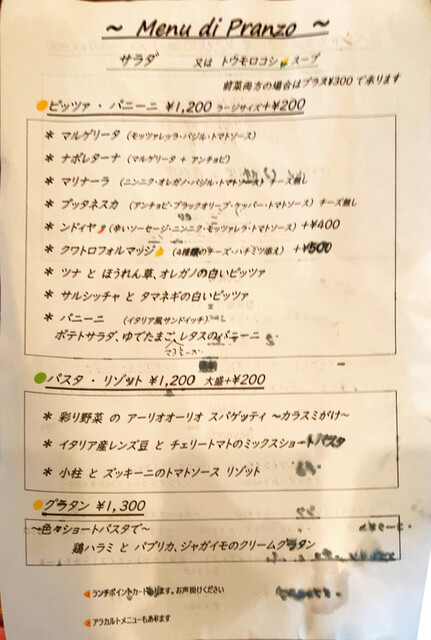 ～ Menu di Pranzo ～
サラダ 又は トウモロコシ スープ
前菜両方の場合はプラス¥300 で承ります
ピッツァ ・ パニーニ ¥1,200 ラージサイズ+¥200
* マルゲリータ (モッツァレッラ・バジル・トマトソース)
* ナポレターナ (マルゲリータ + アンチョビ)
* マリナーラ (ニンニク・オレガノ・バジル・トマトソース) チーズ無し
* プッタネスカ (アンチョビ・ブラックオリーブ・ケッパー・トマトソース) チーズ無し
* ンドイヤ (辛いソーセージ・ニンニク・モッツァレラ・トマトソース) +¥400
* クワトロフォルマッジ (4種類のチーズ・ハチミツ添え) +¥500
* ツナ と ほうれん草、オレガノの白いピッツァ
* サルシッチャ と タマネギの白いピッツァ
* パニーニ (イタリア風サンドイッチ)
ポテトサラダ、ゆでたまご、レタスのパニーニ
マヨネーズ
パスタ ・ リゾット ¥1,200 大盛+¥200
* 彩り野菜 の アーリオオーリオ スパゲッティ ～カラスミがけ～
* イタリア産レンズ豆 と チェリートマトのミックスショートパスタ
* 小柱 と ズッキーニのトマトソース リゾット
グラタン ¥1,300
～色々ショートパスタで～
鶏ハラミ と パプリカ、ジャガイモのクリームグラタン
ランチポイントカードあります。お声掛けください
アラカルトメニューもあります